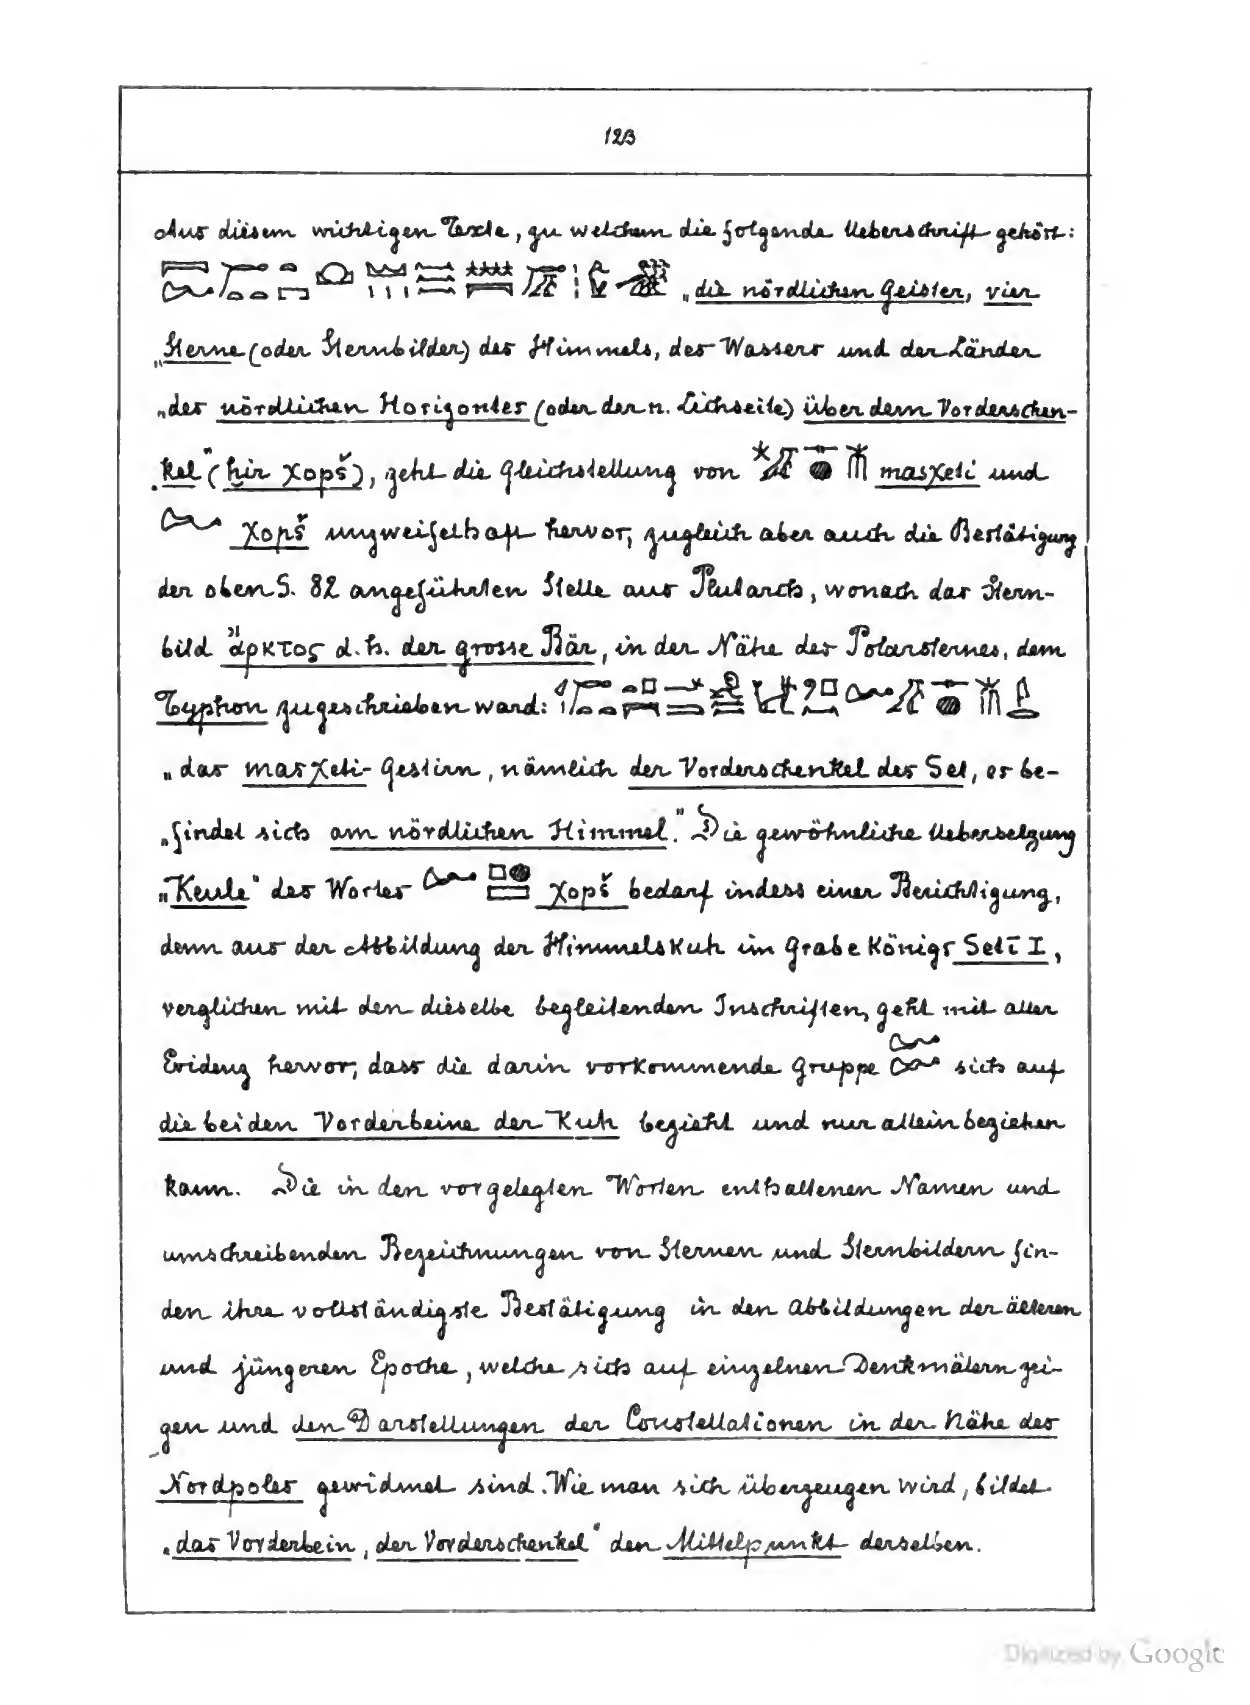 123
Aus diesem wichtigen Texte, zu welchem die folgende Ueberschrift gehört:
„die nördlichen Geister, vier
„Sterne (oder Sternbilder) des Himmels, des Wassers und der Länder
„des nördlichen Horizontes (oder der n. Lichseite) über dem Vorderschen-
„kel" (ḥir χopš), geht die Gleichstellung von masχeti und
χopš unzweifelhaft hervor, zugleich aber auch die Bestätigung
der oben S. 82 angeführten Stelle aus Plutarch, wonach das Stern-
bild ἄρκτος d.h. der grosse Bär, in der Nähe des Polarsternes, dem
Typhon zugeschrieben ward:
„das masχeti-Gestirn, nämlich der Vorderschenkel des Set, es be-
„findet sich am nördlichen Himmel." Die gewöhnliche Uebersetzung
„Keule" des Wortes χopš bedarf indess einer Berichtigung,
denn aus der Abbildung der Himmelskuh im Grabe Königs Seti I,
verglichen mit den dieselbe begleitenden Inschriften, geht mit aller
Evidenz hervor, dass die darin vorkommende Gruppe sich auf
die beiden Vorderbeine der Kuh bezieht und nur allein beziehen
kann. Die in den vorgelegten Worten enthaltenen Namen und
umschreibenden Bezeichnungen von Sternen und Sternbildern fin-
den ihre vollständigste Bestätigung in den Abbildungen der älteren
und jüngeren Epoche, welche sich auf einzelnen Denkmälern zei-
gen und den Darstellungen der Constellationen in der Nähe des
Nordpoles gewidmet sind. Wie man sich überzeugen wird, bildet
„das Vorderbein, der Vorderschenkel" den Mittelpunkt derselben.
Digitized by Google